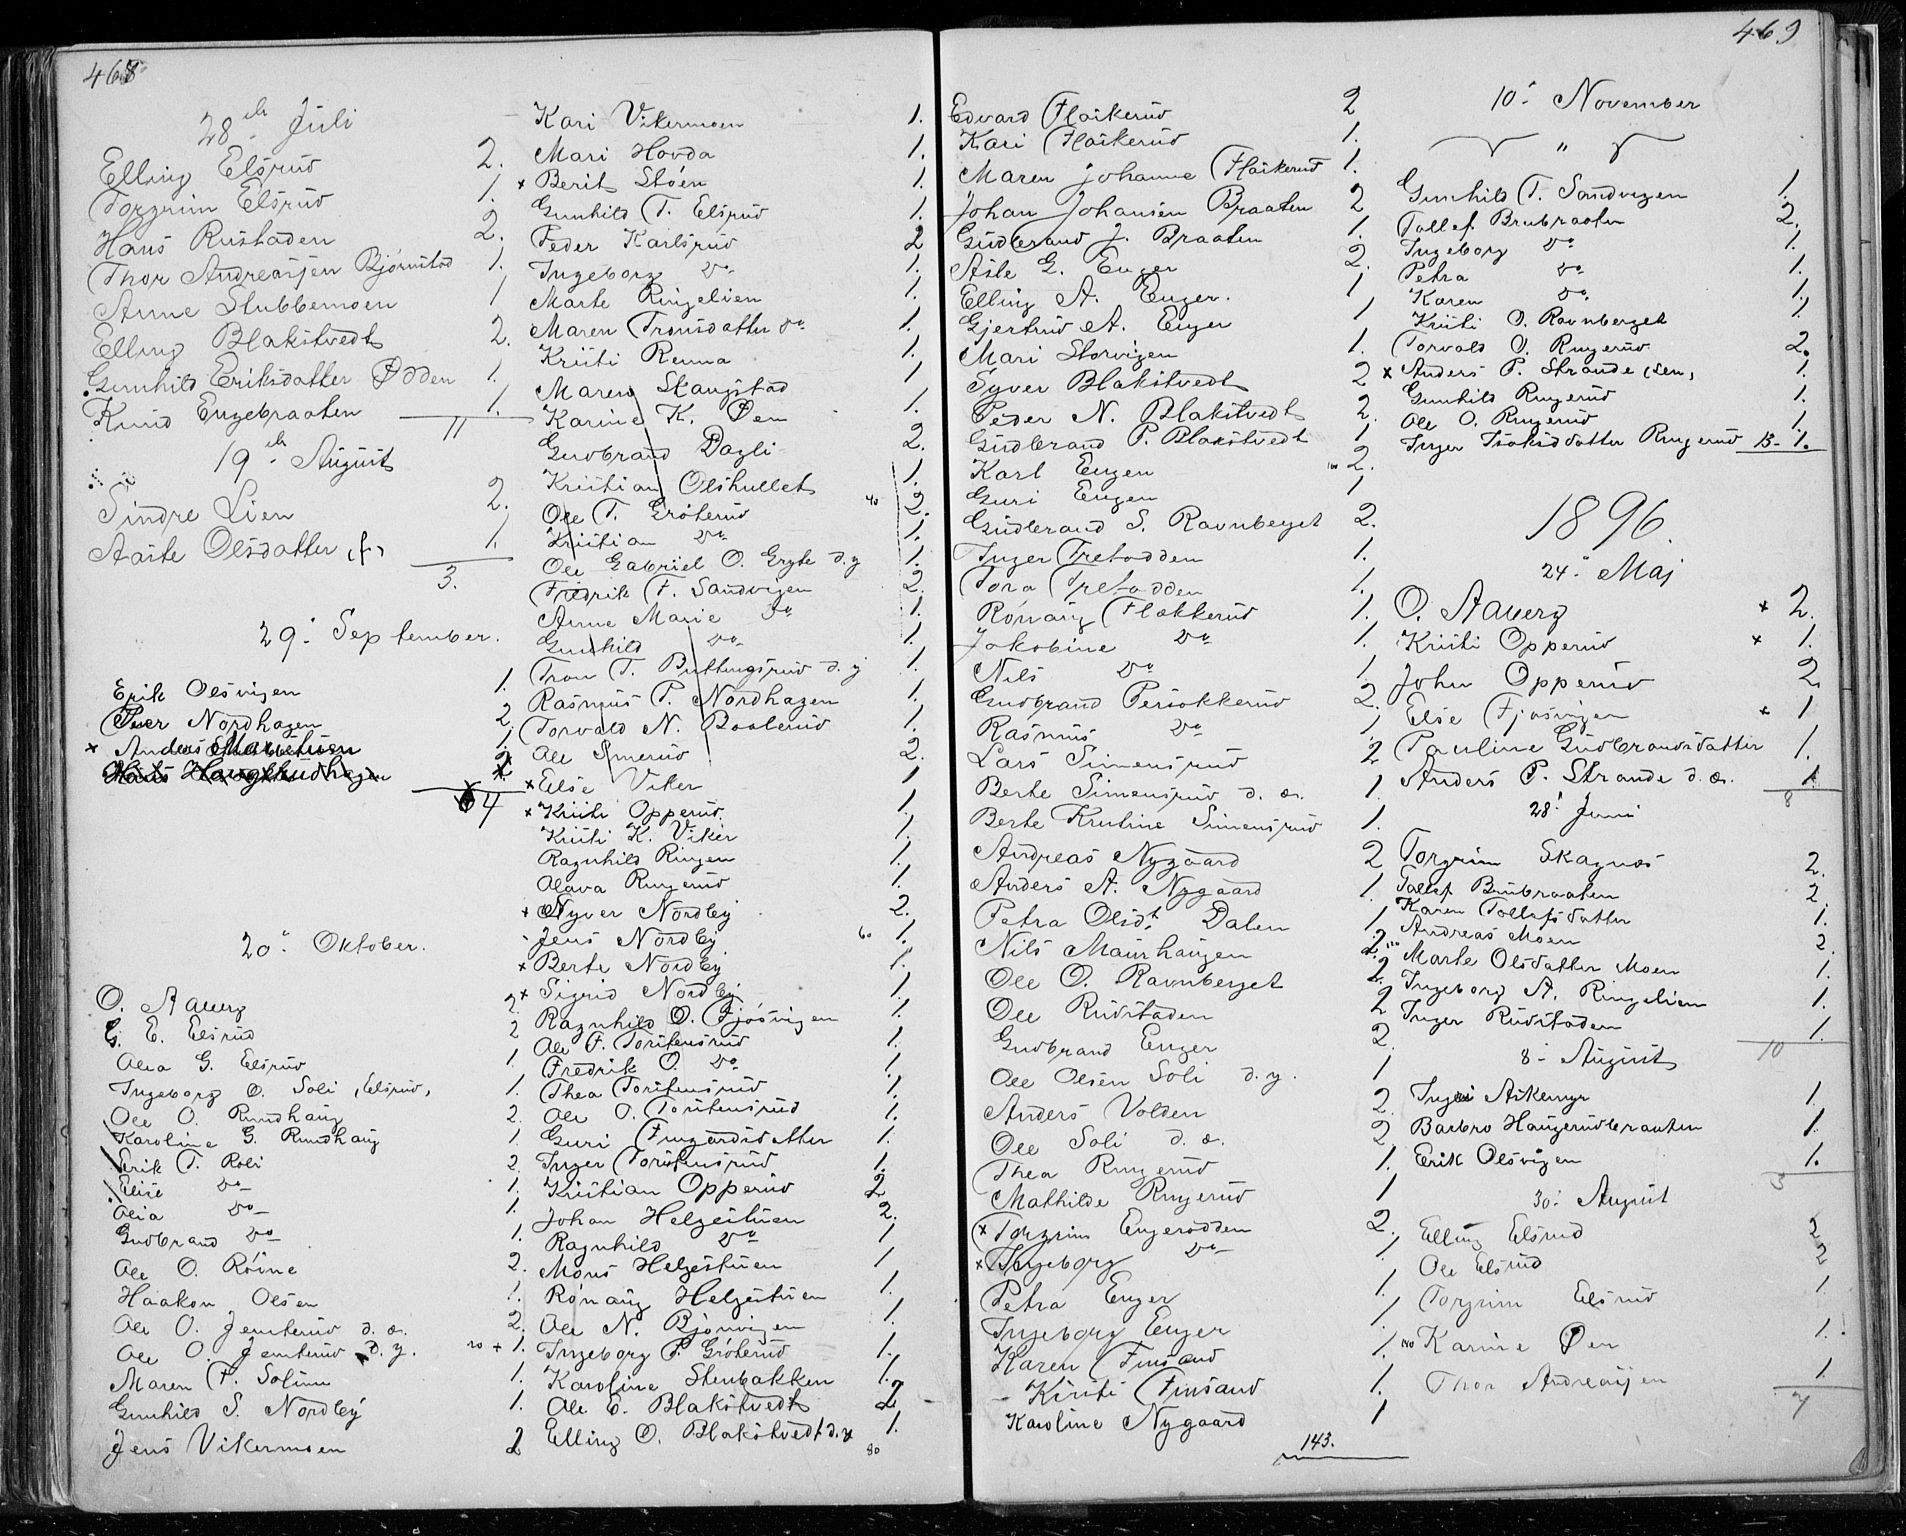 468
28de Juli
Elling Elsrud 2.
Torgrim Elsrud 1.
Hans Rustaden 2.
Thor Andreassen Bjørnstad 1.
Anne Stubbemoen 1
Elling Blakstvedt 2.
Gunhild Eriksdatter Ødden 1.
Knud Engebraaten 1.
11
19de August
Sindre Lien 2.
Aaste Olsdatter (f) 1.
3.
29. September.
Erik Olsvigen 1.
Iver Nordhagen 2.
x Anders 1.
4
20. Oktober.
O. Aaberg 2.
G. E. Elsrud 2
Olia G. Elsrud 1
Ingeborg O. Soli, Elsrud, 1.
Ole O. Rundhaug 2.
Karoline G. Rundhaug 1.
Erik T. Roli 2.
Elise Do 1.
Olia Do 1.
Gudbrand Do 1.
Ole O. Roine 2.
Haakon Olsen 1.
Ole O. Jemterud d. æ. 2.
Ole O. Jemterud d. y. 20 + 1.
Maren P. Solum 1.
Gunhild S. Nordby 1.
Jens Vikermoen 2
Kari Vikermoen 1.
Mari Hovda 1.
x Berit Støen 1.
Gunhild T. Elsrud 1.
Peder Karlsrud 2
Ingeborg Do 1.
Marte Ringelien 1.
Maren Tronsdatter Do 1.
Kristi Renna 1.
Maren Skangstad 1
Karine K. Øen 1.
Gudbrand Dagli 2.
Kristian Olshullet 1.
Ole T. Grøterud 40 2.
Kristian Do 1.
Ole Gabriel O. Gryte d. y 1.
Fredrik F. Sandvigen 2.
Anne Marie Do 1.
Gunhild Do 1.
Tron T. Buttingsrud d. y 1
Rasmus P. Nordhagen 1.
Torvald N. Baalerud 1.
Ole Smerud 2.
x Else Viker 1
x Kristi Opperud 1.
Kristi K. Viker 1.
Ragnhild Ringen 1.
Olava Ringerud 1.
x Syver Nordby 2.
Jens Nordby 60 1.
x Berte Nordby 1.
x Sigrid Nordby 1.
Ragnhild O. Fjøsvigen 1.
Ole F. Torstensrud 1.
Fredrik O. Do 1.
Thea Torstensrud 1.
Ole O. Torstensrud 1.
Guri Fingardsdatter 1.
Inger Torstensrud 1.
Kristian Opperud 2
Johan Helgestuen 2.
Ragnhild Do 1
Mons Helgestuen 1
Rønaug Helgestuen 1.
Ole N. Bjønvigen 1.
Ingeborg P. Grøterud 1.
Karoline Stenbakken 1.
Ole E. Blakstvedt 2
Elling O. Blakstvedt d. y 80 1.
469
Edvard Flaskerud 2
Kari Flaskerud 1.
Maren Johanne Flaskerud 1.
Johan Johansen Braaten 2
Gudbrand J. Braaten 1.
Asle G. Enger 2.
Elling A. Enger. 1
Gjertrud A. Enger 1
Mari Storvigen 1.
Syver Blakstvedt 2
Peder N. Blakstvedt 2.
Gudbrand P. Blakstvedt 1
Karl Engen 100 2.
Guri Engen 1
Gudbrand S. Ravnberget 2.
Inger Tretodden 1.
Tora Tretodden 1.
Rønaug Flakkerud 1.
Jakobine Do 1.
Nils Do 1.
Gudbrand Persokkerud 2.
Rasmus Do 1
Lars Simensrud 2
Berte Simensrud d. æ. 1.
Berte Kristine Simensrud 1.
Andreas Nygaard 2
Anders A. Nygaard 1.
Petra Olsdt. Dalen 1
Nils Maurhaugen 2. 120
Ole O. Ravnberget 2
Ole Rudstaden 2
Gudbrand Enger 2.
Ole Olsen Soli d. y. 1
Anders Volden 2
Ole Soli d. æ. 2
Thea Ringerud 1.
Mathilde Ringerud 1
x Torgrim Engerodden 2.
x Ingeborg Do 1
Petra Enger 1.
Ingeborg Enger 1.
Karen Finsand 1. 140
Kristi Finsand 1.
Karoline Nygaard 1
143.
10. November
"
Gunhild T. Sandvigen 1.
Tollef Brubraaten 2.
Ingeborg Do 1.
Petra Do 1.
Karen Do 1.
Kristi O. Ravnberget 1.
Torvald O. Ringerud 2.
x Anders P. Strande (sen, 1.
Gunhild Ringerud 1.
Ole O. Ringerud 1.
Inger Isaksdatter Ringerud 13. 1.
1896.
24. Maj
O. Aaberg x 2.
Kristi Opperud x 1.
John Opperud 2
Else Fjøsvigen x 1
Pauline Gudbrandsdatter 1.
Anders P. Strande d. æ. 1
8
28. Juni
Torgrim Skagnæs 2.
Tollef Brubraaten 2
Karen Tollefsdatter 1.
Andreas Moen 2.
Marte Olsdatter Moen 1.
Ingeborg A. Ringelien 1.
Inger Rudstaden 1.
10
8. August
Inger Askemyr 1.
Barbro Haugerudbraaten 1
Erik Olsvigen 1.
3
30. August
Elling Elsrud 2
Ole Elsrud 2
Torgrim Elsrud 1
Karine Øen 1.
Thor Andreassen 1.
7